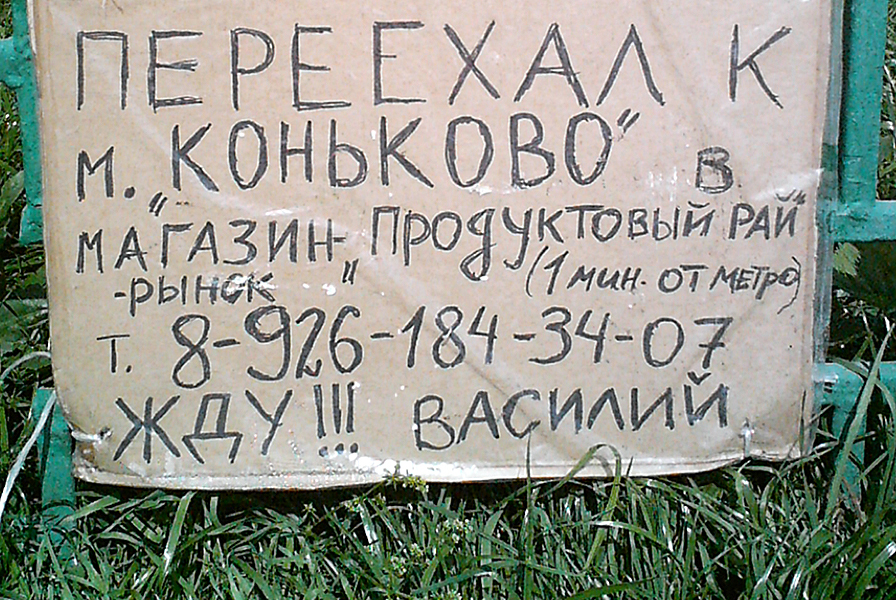 ПЕРЕЕХАЛ К
м. „КОНЬКОВО" в
МАГАЗИН- „ПРОДУКТОВЫЙ РАЙ"
-РЫНОК (1 мин. от метро)
т. 8-926-184-34-07
ЖДУ!!! ВАСИЛИЙ